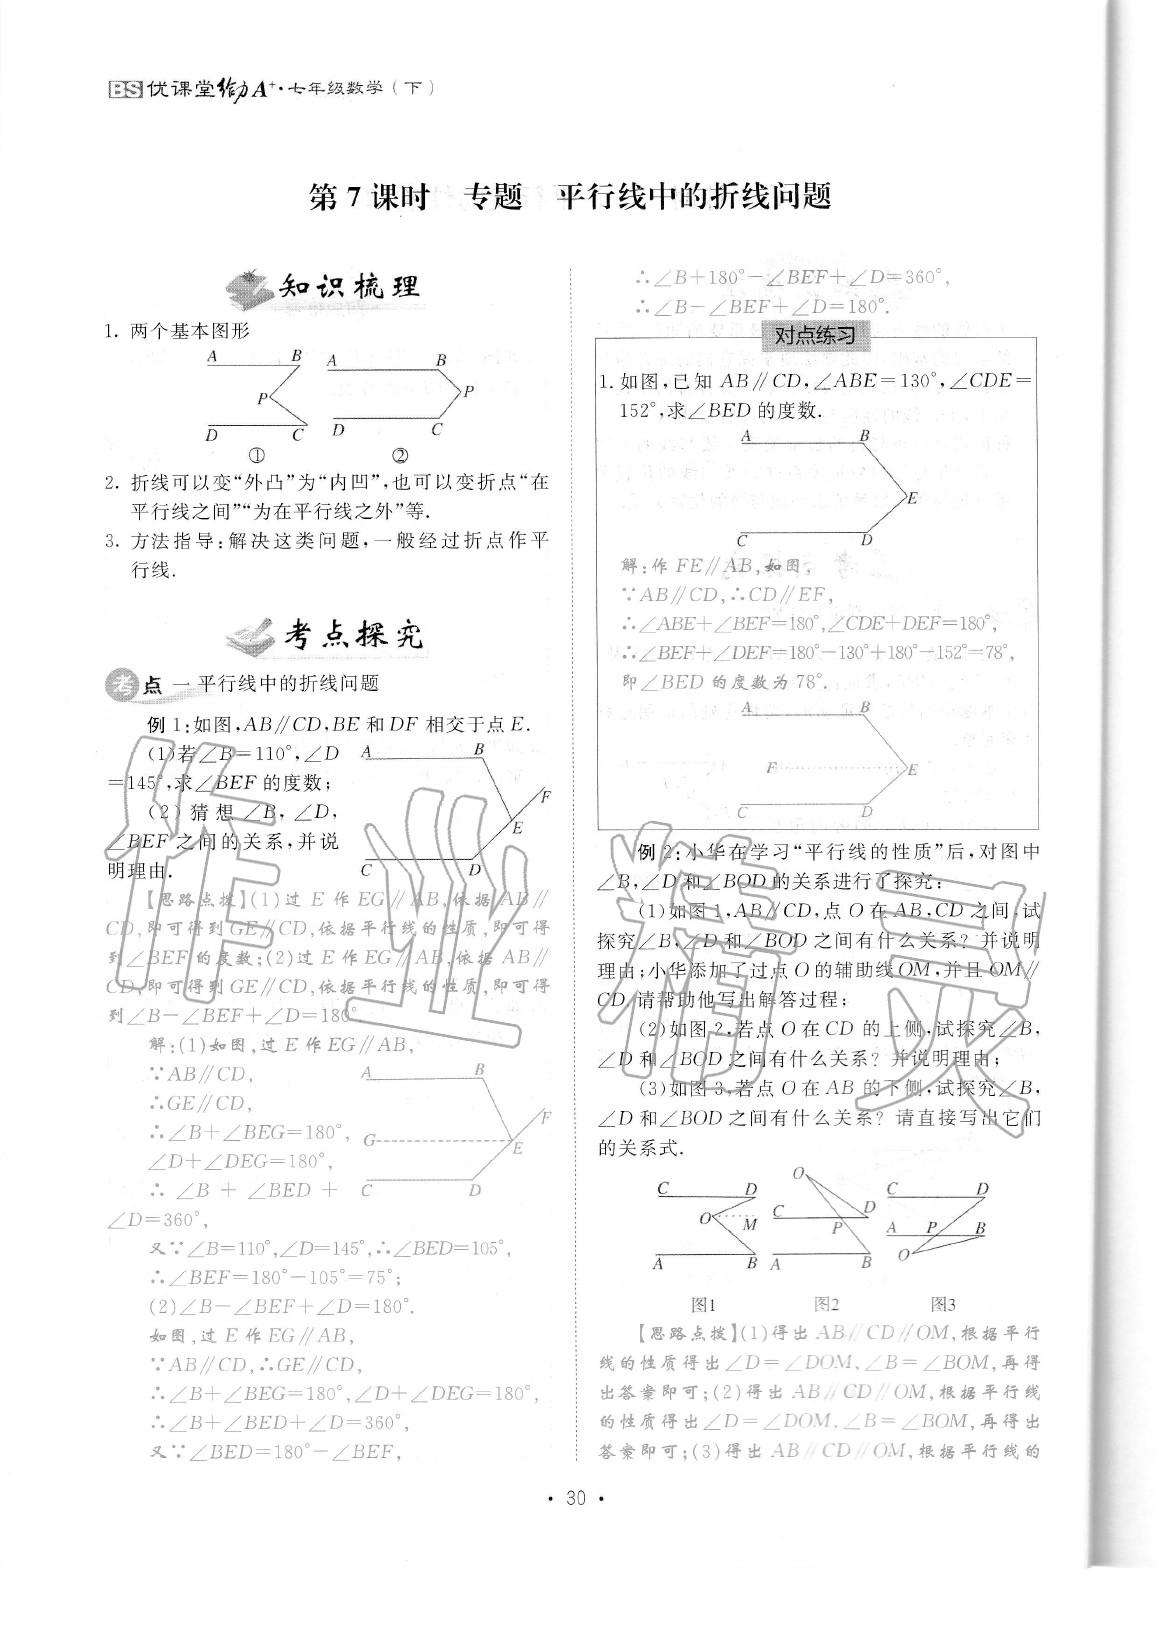 BS优课堂给力A⁺·七年级数学(下)
第7课时 专题 平行线中的折线问题
知识梳理
1. 两个基本图形
A B A B
P P
D C D C
① ②
2. 折线可以变“外凸”为“内凹”,也可以变折点“在
平行线之间”“为在平行线之外”等.
3. 方法指导:解决这类问题,一般经过折点作平
行线.
考点探究
考点一 平行线中的折线问题
例1:如图,AB∥CD,BE和DF相交于点E.
(1)若∠B=110°,∠D
=145°,求∠BEF的度数;
(2)猜想∠B,∠D,
∠BEF之间的关系,并说
明理由.
A B
F
E
C D
【思路点拨】(1)过E作EG∥AB,依据AB∥
CD,即可得到GE∥CD,依据平行线的性质,即可得
到∠BEF的度数;(2)过E作EG∥AB,依据AB∥
CD,即可得到GE∥CD,依据平行线的性质,即可得
到∠B-∠BEF+∠D=180°
解:(1)如图,过E作EG∥AB,
∵AB∥CD,
∴GE∥CD,
∴∠B+∠BEG=180°,
∠D+∠DEG=180°,
∴∠B+∠BED+
∠D=360°,
A B
F
G E
C D
又∵∠B=110°,∠D=145°,∴∠BED=105°,
∴∠BEF=180°-105°=75°;
(2)∠B-∠BEF+∠D=180°.
如图,过E作EG∥AB,
∵AB∥CD,∴GE∥CD,
∴∠B+∠BEG=180°,∠D+∠DEG=180°,
∴∠B+∠BED+∠D=360°,
又∵∠BED=180°-∠BEF,
∴∠B+180°-∠BEF+∠D=360°,
∴∠B-∠BEF+∠D=180°.
对点练习
1.如图,已知AB∥CD,∠ABE=130°,∠CDE=
152°,求∠BED的度数.
A B
E
C D
解:作FE∥AB,如图,
∵AB∥CD,∴CD∥EF,
∴∠ABE+∠BEF=180°,∠CDE+DEF=180°,
∴∠BEF+∠DEF=180°-130°+180°-152°=78°,
即∠BED的度数为78°.
A B
F E
C D
例2:小华在学习“平行线的性质”后,对图中
∠B,∠D和∠BOD的关系进行了探究:
(1)如图1,AB∥CD,点O在AB,CD之间,试
探究∠B,∠D和∠BOD之间有什么关系?并说明
理由;小华添加了过点O的辅助线OM,并且OM∥
CD,请帮助他写出解答过程;
(2)如图2,若点O在CD的上侧,试探究∠B,
∠D和∠BOD之间有什么关系?并说明理由;
(3)如图3,若点O在AB的下侧,试探究∠B,
∠D和∠BOD之间有什么关系?请直接写出它们
的关系式.
C D O C D
O M C P D A P B
A B A B O
图1 图2 图3
【思路点拨】(1)得出AB∥CD∥OM,根据平行
线的性质得出∠D=∠DOM,∠B=∠BOM,再得
出答案即可;(2)得出AB∥CD∥OM,根据平行线
的性质得出∠D=∠DOM,∠B=∠BOM,再得出
答案即可;(3)得出AB∥CD∥OM,根据平行线的
·30·
作业精灵